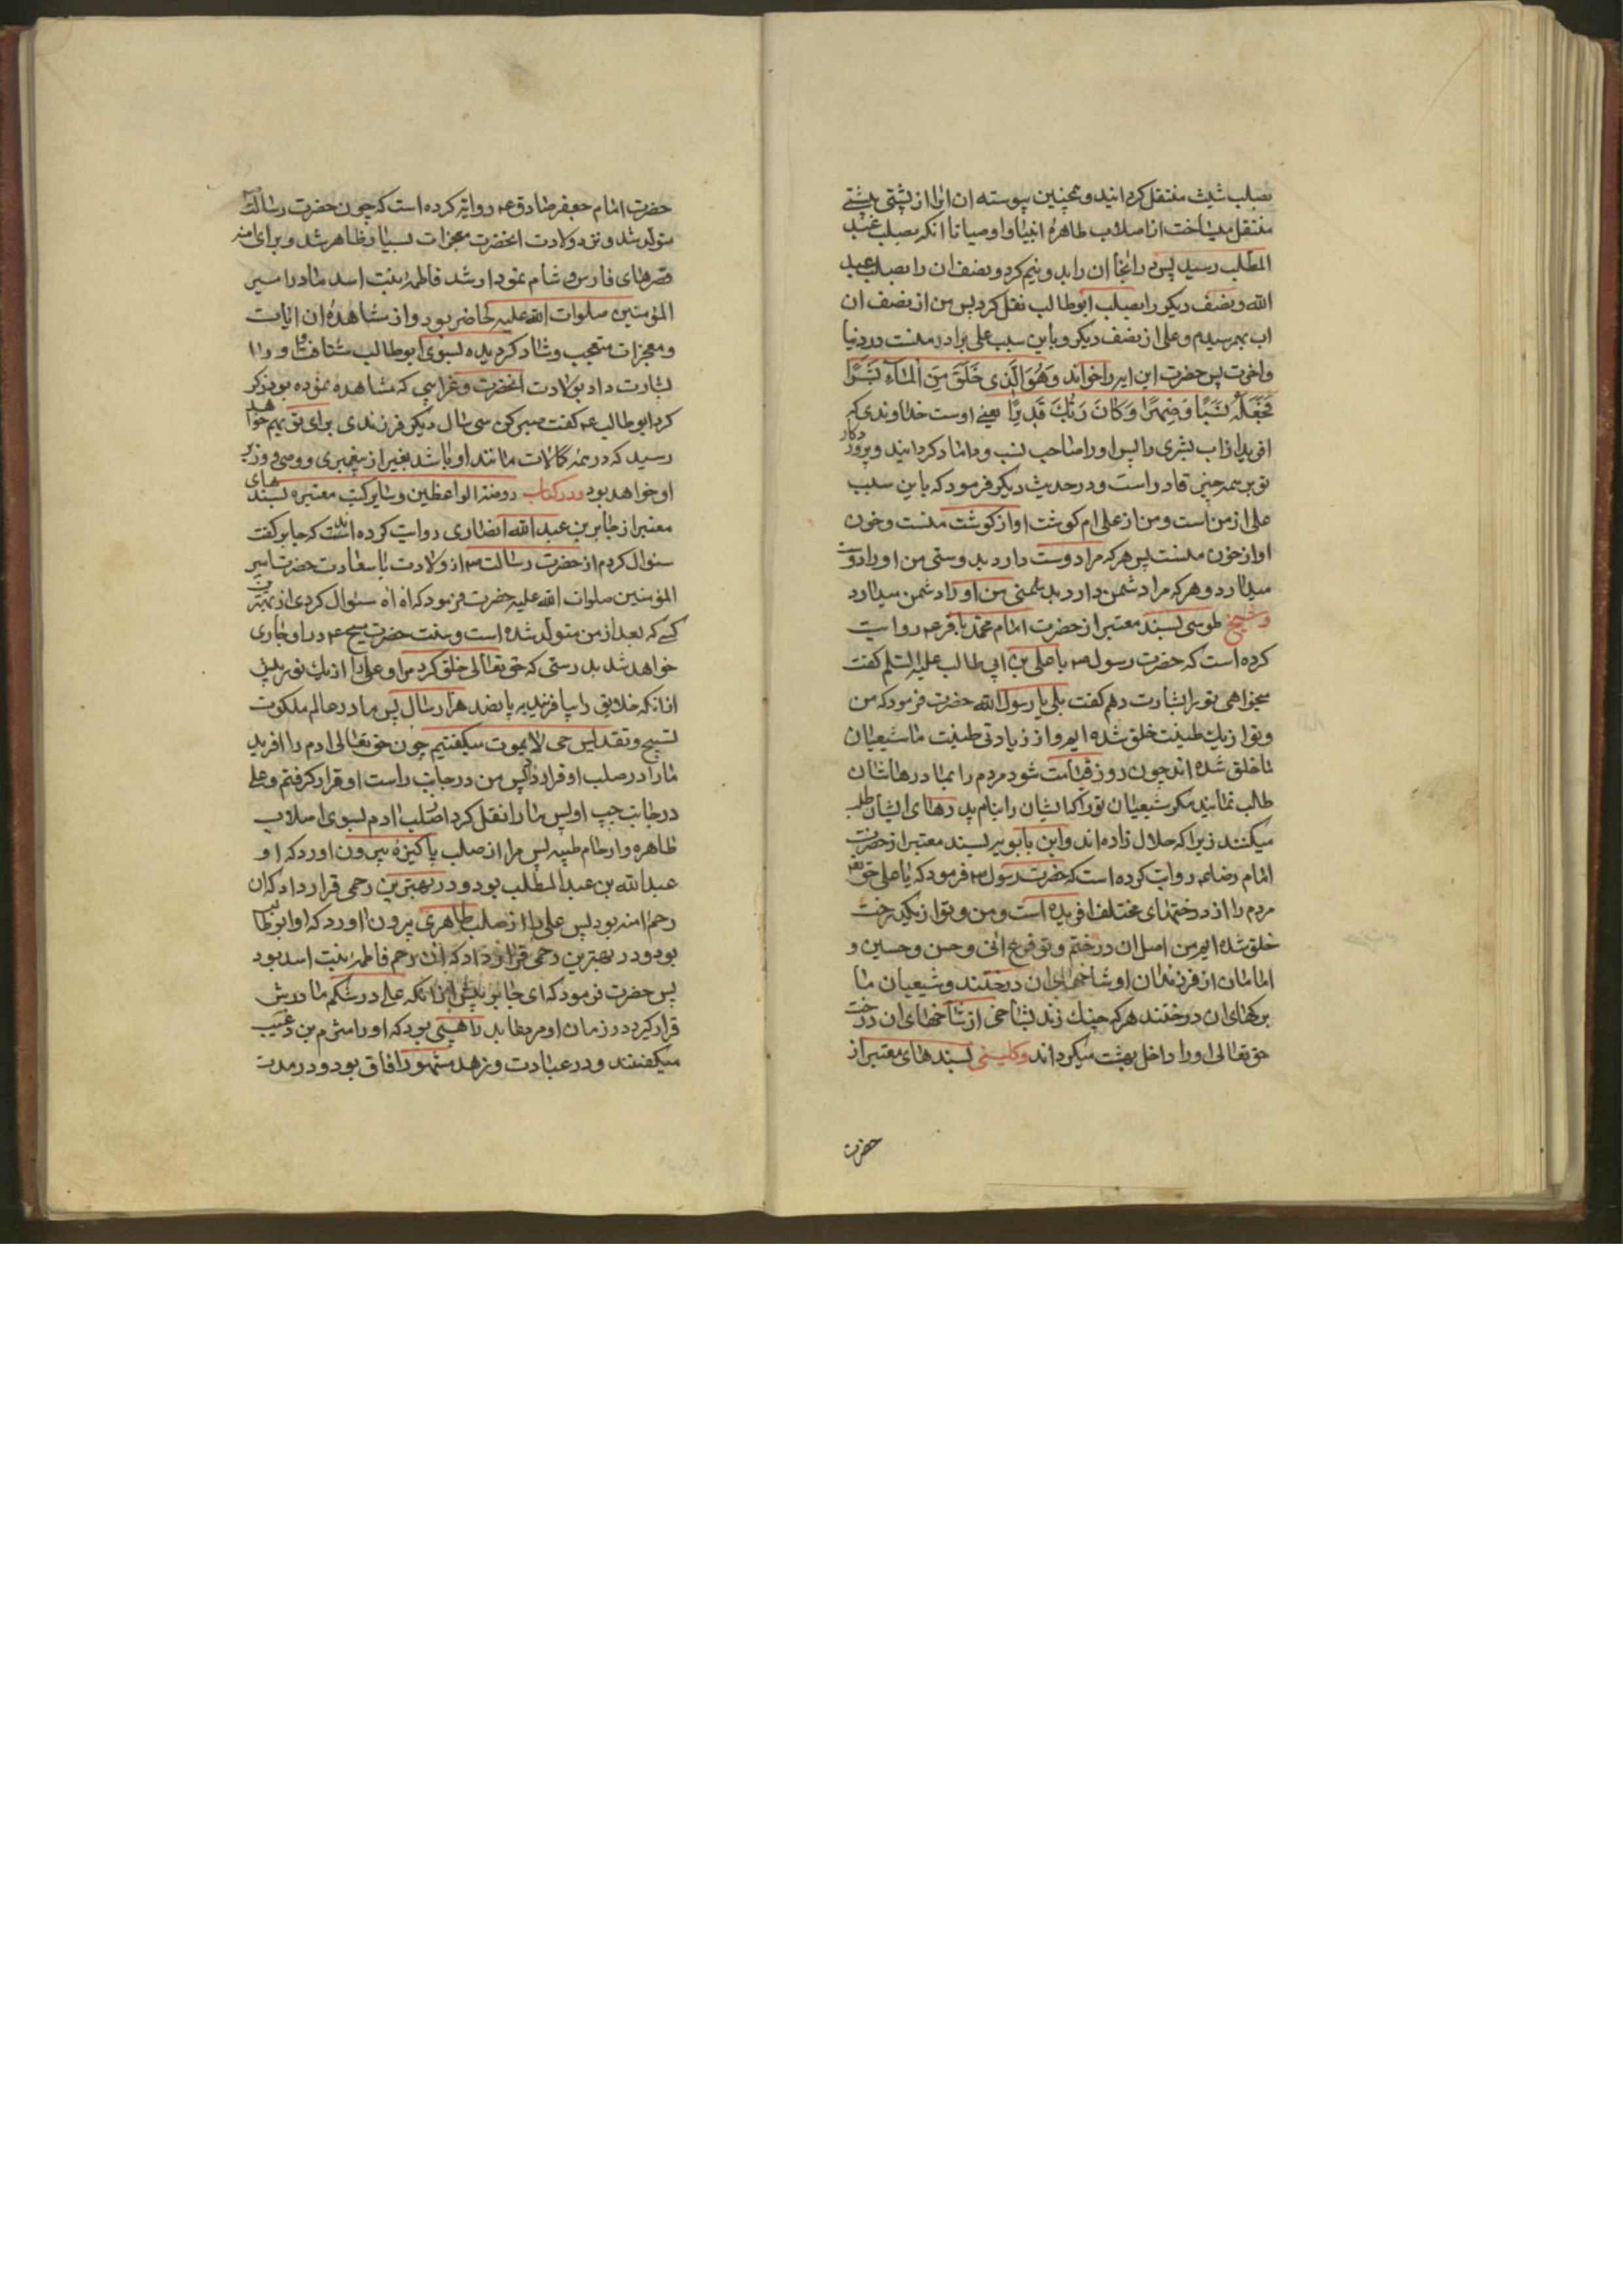 بصلب شیث منتقل کردانید و همچنین پیوسته ان اب از پشتی به پشتی
منتقل میساخت از اصلاب طاهرهٔ انبیا و اوصیا تا انکه بصلب عبد
المطلب رسید پس در انجا ان را بدو نیم کرد و نصف ان را بصلب عبد
الله و نصف دیکر را بصلب ابوطالب نقل کرد پس من از نصف ان
اب بهم رسیدم و علی از نصف دیکر و باین سبب علی برادر منست در دنیا
و اخرت پس حضرت این ایه را خواند وَهُوَ الَّذِی خَلَقَ مِنَ الْمَآءِ بَشَرًا
فَجَعَلَهُ نَسَبًا وَصِهْرًا وَكَانَ رَبُّكَ قَدِیرًا یعنی اوست خداوندی که
افرید از اب بشری را پس او را صاحب نسب و داماد کردانید و پروردکار
تو بر همه چیز قادر است و در حدیث دیکر فرمود که باین سبب
علی از من است و من از علی ام کوشت او از کوشت منست و خون
او از خون منست پس هر که مرا دوست دارد بدوستی من او را دوست
میدارد و هر که مرا دشمن دارد بدشمنی من او را دشمن میدارد
و شیخ طوسی بسند معتبر از حضرت امام محمد باقر ع روایت
کرده است که حضرت رسول ص با علی بن ابی طالب علیه السلم کفت
میخواهی تو را بشارت دهم کفت بلی یا رسول الله حضرت فرمود که من
و تو از یك طینت خلق شده ایم و از زیادتی طینت ما شیعیان
ما خلق شده اند چون روز قیامت شود مردم را بمادرهاشان
طالب نمایند مکر شیعیان تو را که ایشان را بنام پدرهای ایشان طلب
میکنند زیرا که حلال زاده اند و ابن بابویه بسند معتبر از حضرت
امام رضا ع روایت کرده است که حضرت رسول ص فرمود که یا علی حق تع
مردم را از درختهای مختلف افریده است و من و تو از یکدرخت
خلق شده ایم من اصل ان درختم و تو فرع انی و حسن و حسین و
امامان از فرزندان او شاخهای ان درختند و شیعیان ما
برکهای ان درختند هر که چنك زند بشاخی از شاخهای ان درخت
حق تعالی او را داخل بهشت میکرداند و کلینی بسندهای معتبر از
حضرت
حضرت امام جعفر صادق ع روایه کرده است که چون حضرت رسالت ص
متولد شد و نزد ولادت انحضرت معجزات بسیار ظاهر شد و برای امنه
قصرهای فارس و شام نمودار شد فاطمه بنت اسد مادر امیر
المؤمنین صلوات الله علیه حاضر بود و از مشاهدهٔ ان ایات
و معجزات متعجب و شاد کردیده بسوی ابوطالب شتافت و او را
بشارت داد بولادت انحضرت و غرایبی که مشاهده نموده بود ذکر
کرد ابوطالب ع کفت صبر کن سی سال دیکر فرزندی برای تو بهم خواهد
رسید که در همه کمالات مانند او باشد بغیر از پیغمبری و وصی و وزیر
او خواهد بود و در کتاب روضة الواعظین و سایر کتب معتبره بسندهای
معتبر از جابر بن عبد الله انصاری روایت کرده اند که جابر کفت
سئوال کردم از حضرت رسالت ص از ولادت با سعادت حضرت امیر
المؤمنین صلوات الله علیه حضرت فرمود که اه اه سئوال کردی از بهترین
کسی که بعد از من متولد شده است و سنت حضرت مسیح ع در او جاری
خواهد شد بدرستی که حق تعالی خلق کرد مرا و علی را از یك نور پیش
از انکه خلایق را بیافریند به پانصد هزار سال پس ما در عالم ملکوت
تسبیح و تقدیس حی لا یموت میکفتیم چون حق تعالی ادم را افرید
ما را در صلب او قرار داد پس من در جانب راست او قرار کرفتم و علی
در جانب چپ او پس ما را نقل کرد از صلب ادم بسوی اصلاب
طاهره و ارحام طیبه پس مرا از صلب پاکیزهٔ بیرون اورد که او
عبد الله بن عبد المطلب بود و در بهترین رحمی قرار داد که ان
رحم امنه بود پس علی را از صلب طاهری بیرون اورد که او ابوطالب
بود و در بهترین رحمی قرار داد که ان رحم فاطمه بنت اسد بود
پس حضرت فرمود که ای جابر پیش از انکه علی در شکم مادرش
قرار کیرد در زمان او مرد عابد راهبی بود که او را مثرم بن دعیب
میکفتند و در عبادت و زهد مشهور افاق بود و در مدت